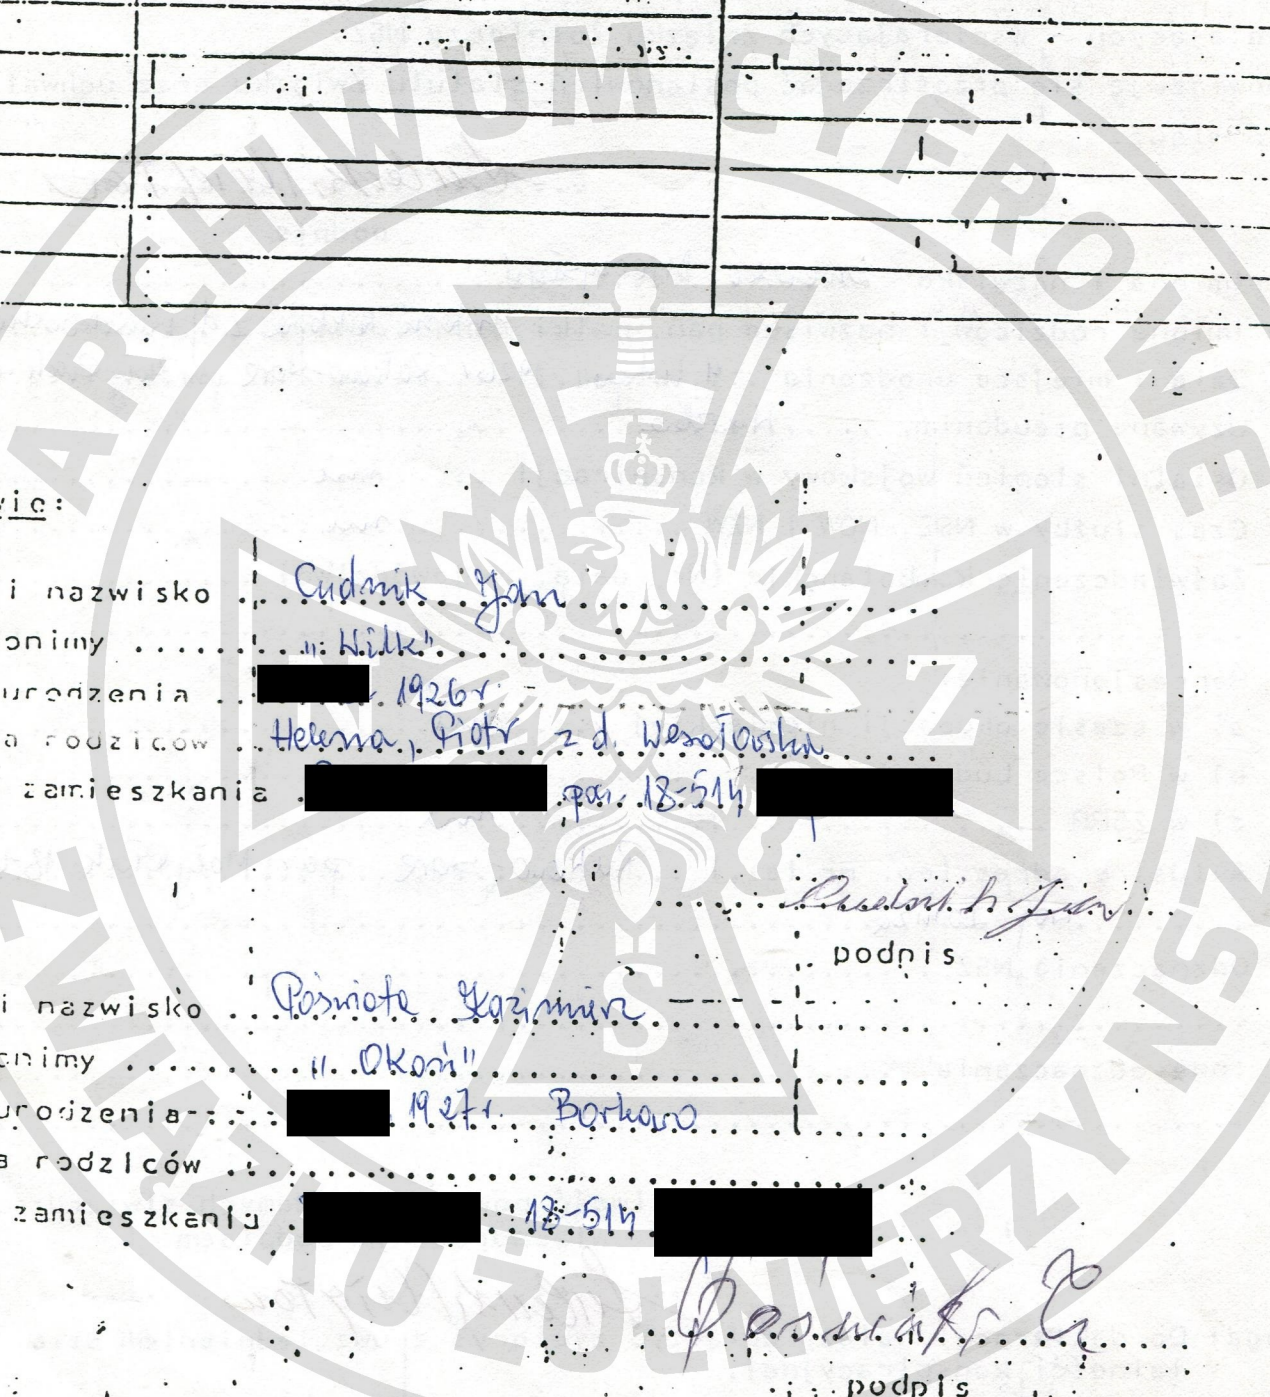 ARCHIWUM CYFROWE
ZWIĄZKU ŻOŁNIERZY NSZ
N Z
S
i nazwisko Cudnik Jan
onimy "Wilk"
urodzenia 1926 r.
a rodziców Helena, Piotr z d. Wesołowska
zamieszkania 18-514
Cudnik Jan
podpis
i nazwisko Poświata Kazimierz
onimy "Okoń"
urodzenia 1927 r. Borkowo
a rodziców
zamieszkania 18-514
podpis